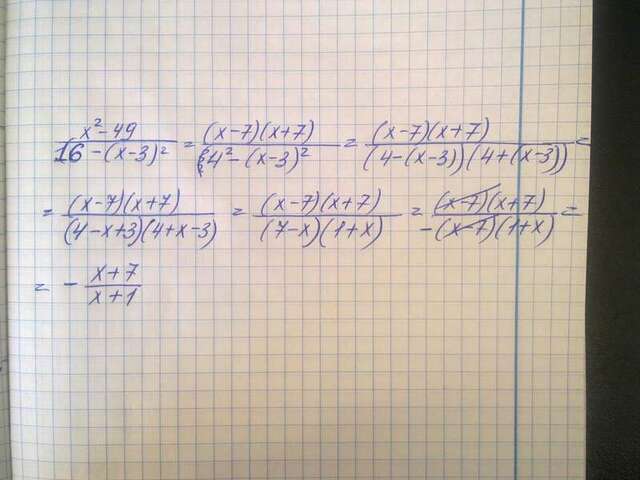 (x²-49)/(16-(x-3)²) = ((x-7)(x+7))/(4²-(x-3)²) = ((x-7)(x+7))/((4-(x-3))(4+(x-3))) =
= ((x-7)(x+7))/((4-x+3)(4+x-3)) = ((x-7)(x+7))/((7-x)(1+x)) = ((x-7)(x+7))/(-(x-7)(1+x)) =
= - (x+7)/(x+1)